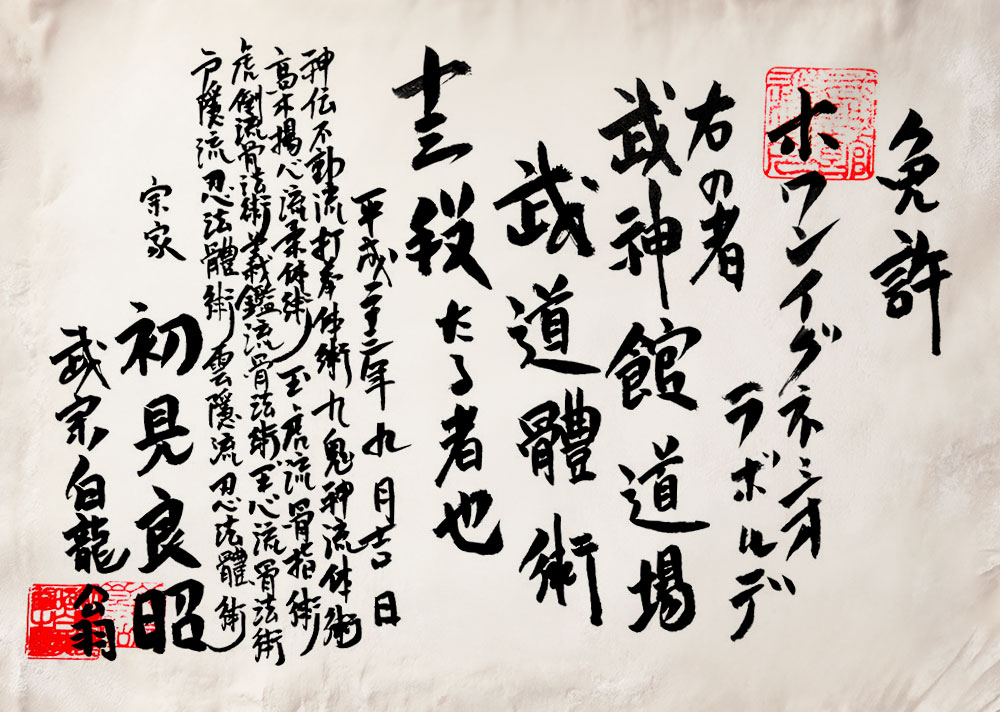 免許
ホワンイグネシオ
ラボルデ
右の者
武神館道場
武道體術
十三段たる者也
平成二十二年九月吉日
神伝不動流打拳体術九鬼神流体術
高木揚心流柔体術玉虎流骨指術
虎倒流骨法術義鑑流骨法術玉心流骨法術
戸隠流忍法體術雲隠流忍法體術
宗家
初見良昭
武宗白龍翁